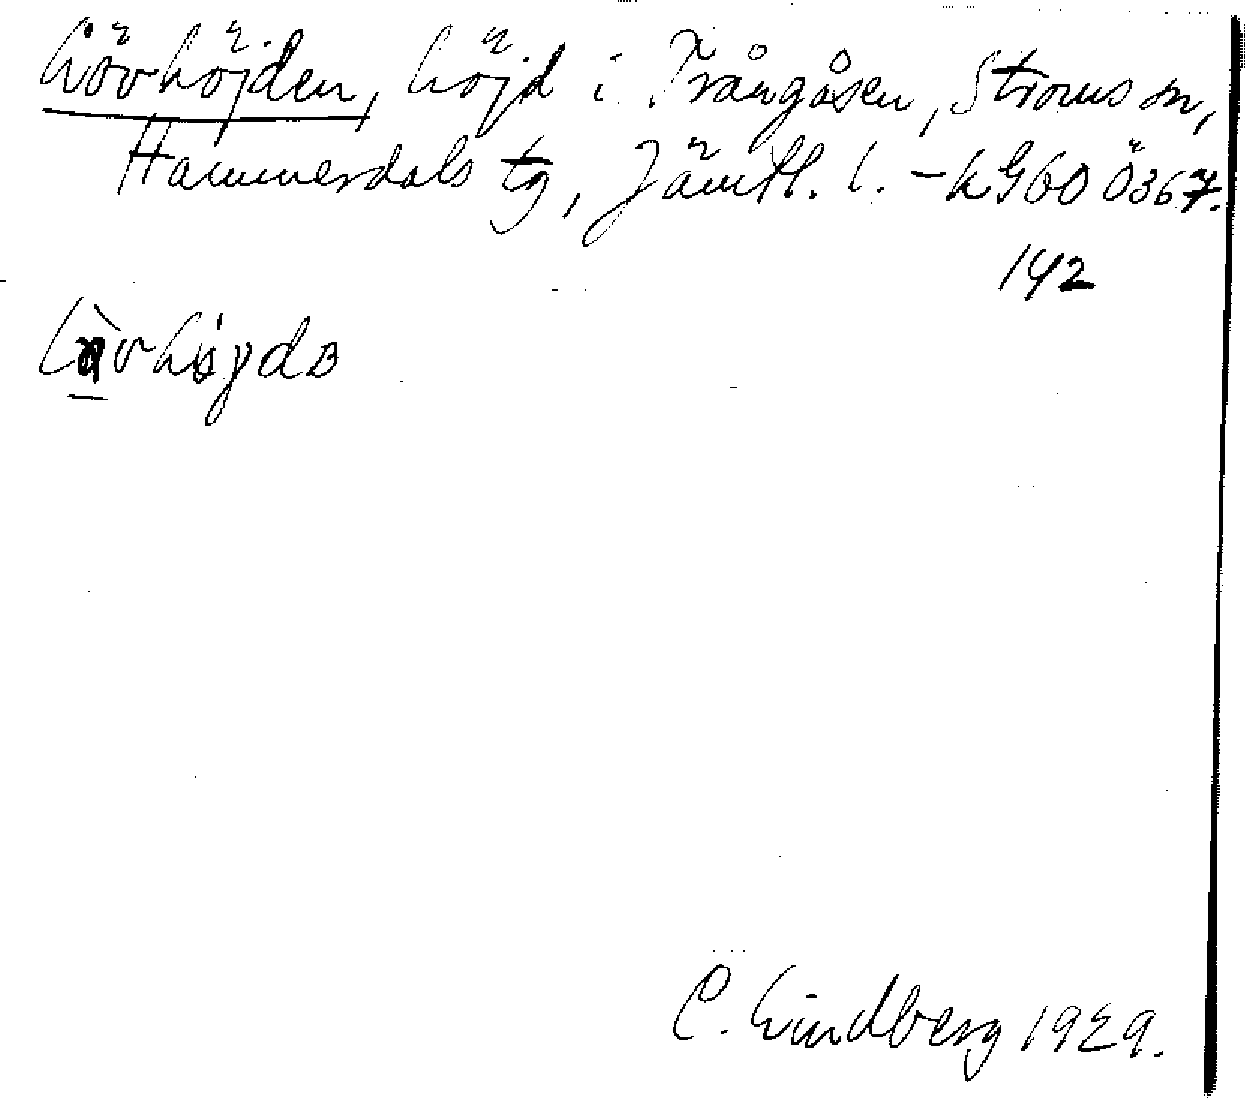 Lövhöjden, höjd i Trångåsen, Ströms sn,
Hammerdals tg, Jämtl. l. - kG60 Ö367.
142
C. Lindberg 1929.